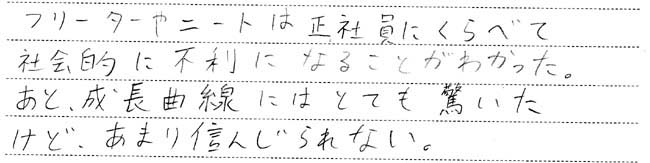 フリーターやニートは正社員にくらべて
社会的に不利になることがわかった。
あと、成長曲線にはとても驚いた
けど、あまり信んじられない。